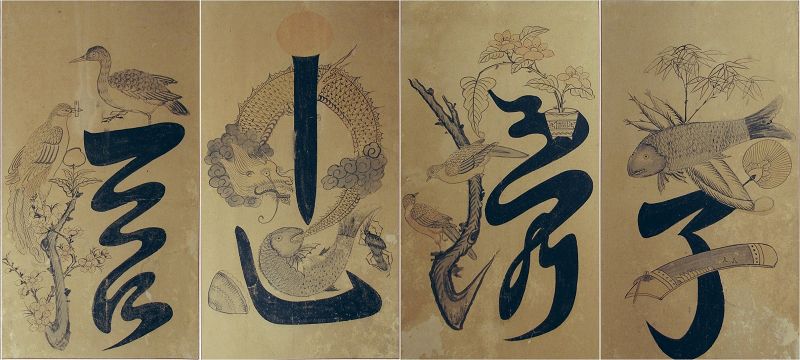 孝
悌
忠
信